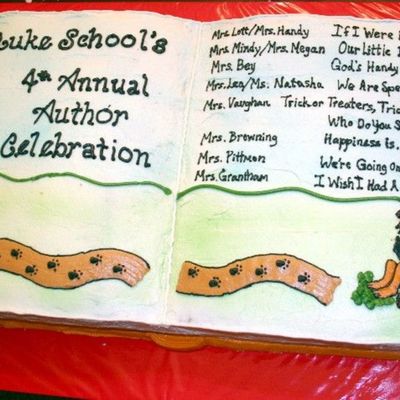 Luke School's
4th Annual
Author
Celebration
Mrs. Lott/Mrs. Handy If I Were
Mrs. Mindy/Mrs. Megan Our Little
Mrs. Bey God's Handy
Mrs. Lea/Ms. Natasha We Are
Mrs. Vaughan Trick or Treaters,
Who Do You
Mrs. Browning Happiness Is.
Mrs. Pittmon We're Going
Mrs. Grantham I Wish I Had A